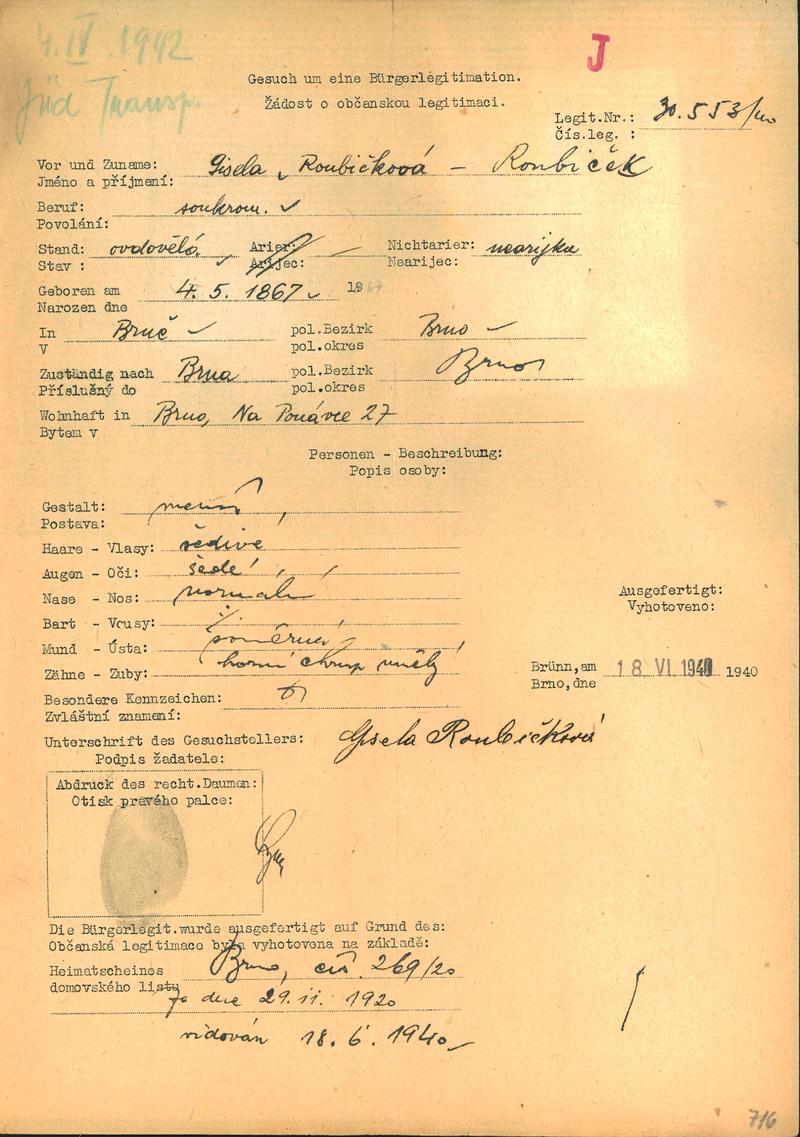 4.IV.1942
J
Jüd Transp.
Gesuch um eine Bürgerlegitimation.
Žádost o občanskou legitimaci.
Legit.Nr.: 30.553/40
Čís.leg. :
Vor und Zuname: Gisela Roubíčková – Roubiček
Jméno a příjmení:
Beruf: soukrom.
Povolání:
Stand: ovdovělá Arier: Nichtarier: nearijka
Stav : Arijec: Nearijec:
Geboren am 4. 5. 1867 19
Narozen dne
In Brně pol.Bezirk Brno
V pol.okres
Zuständig nach Brna pol.Bezirk Brno
Příslušný do pol.okres
Wohnhaft in Brno, Na Ponávce 27
Bytem v
Personen - Beschreibung:
Popis osoby:
Gestalt: menší
Postava:
Haare - Vlasy: šedivé
Augen - Oči: šedé
Nase - Nos: normalní
Bart - Vousy:
Mund - Ústa: souměrná
Zähne - Zuby: horní chrup umělý
Ausgefertigt:
Vyhotoveno:
Brünn,am 18 VI 1940 1940
Brno,dne
Besondere Kennzeichen:
Zvláštní znamení:
Unterschrift des Gesuchstellers: Gisela Roubíčková
Podpis žadatele:
Abdruck des recht.Daumen:
Otisk pravého palce:
Die Bürgerlegit.wurde ausgefertigt auf Grund des:
Občanská legitimace byla vyhotovena na základě:
Heimatscheines Brno, čís 269/20
domovského listu ze dne 29.11.1920
vidován 18.6.1940
716